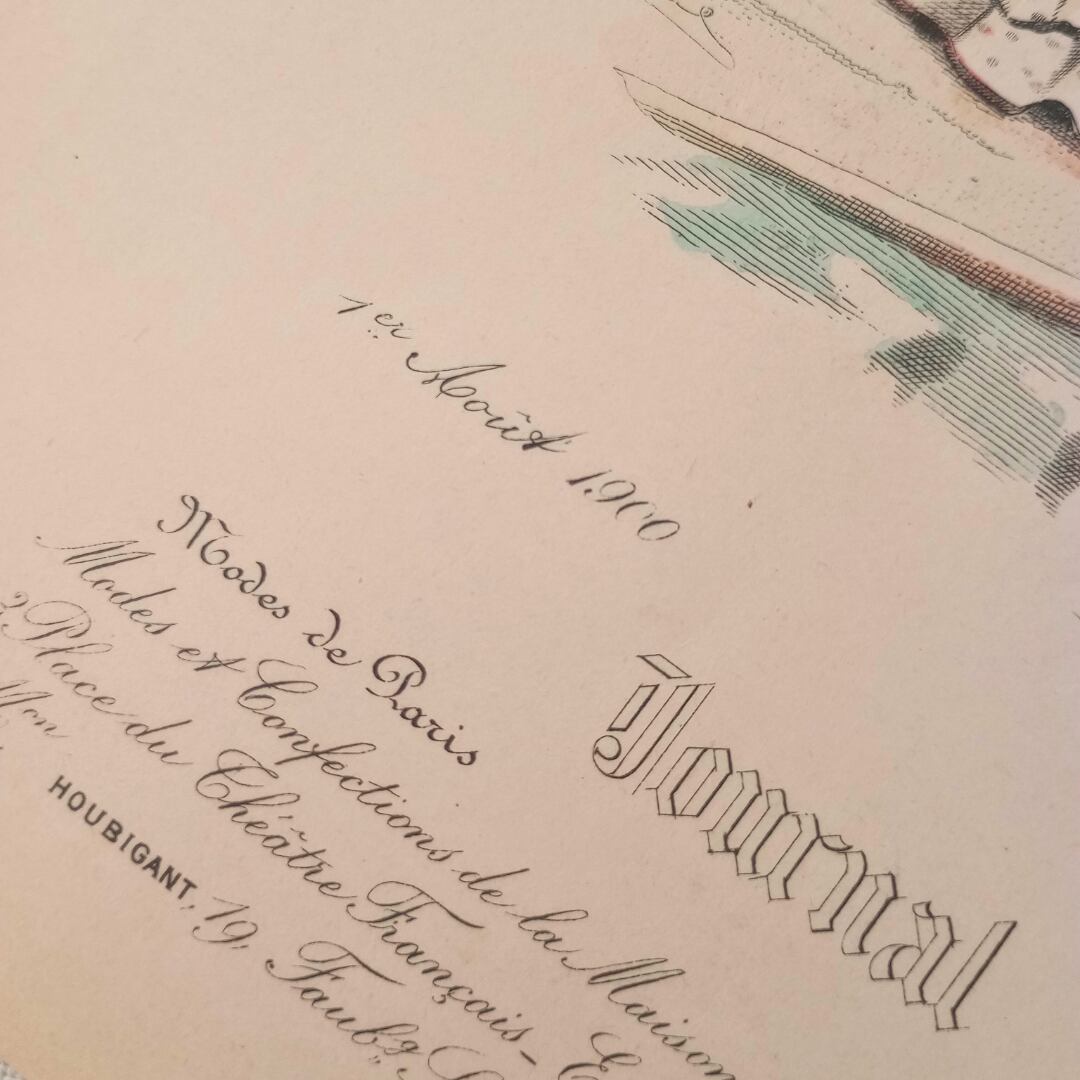 1er Août 1900
Journal
Modes de Paris
Modes et Confections de la Maison
Place du Théâtre Français-
HOUBIGANT, 19, Faubg